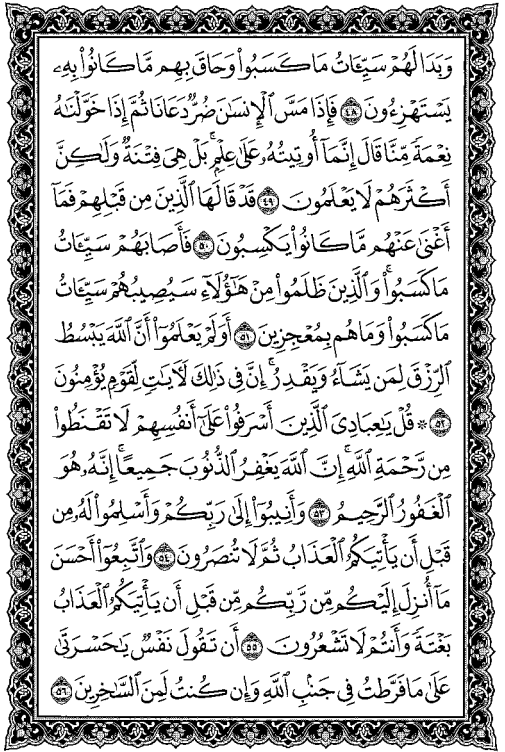 وَبَدَا لَهُمْ سَيِّئَاتُ مَا كَسَبُوا۟ وَحَاقَ بِهِم مَّا كَانُوا۟ بِهِۦ
يَسْتَهْزِءُونَ ٤٨ فَإِذَا مَسَّ ٱلْإِنسَـٰنَ ضُرٌّ دَعَانَا ثُمَّ إِذَا خَوَّلْنَـٰهُ
نِعْمَةً مِّنَّا قَالَ إِنَّمَآ أُوتِيتُهُۥ عَلَىٰ عِلْمٍۭ ۚ بَلْ هِىَ فِتْنَةٌ وَلَـٰكِنَّ
أَكْثَرَهُمْ لَا يَعْلَمُونَ ٤٩ قَدْ قَالَهَا ٱلَّذِينَ مِن قَبْلِهِمْ فَمَآ
أَغْنَىٰ عَنْهُم مَّا كَانُوا۟ يَكْسِبُونَ ٥٠ فَأَصَابَهُمْ سَيِّئَاتُ
مَا كَسَبُوا۟ ۚ وَٱلَّذِينَ ظَلَمُوا۟ مِنْ هَـٰٓؤُلَآءِ سَيُصِيبُهُمْ سَيِّئَاتُ
مَا كَسَبُوا۟ وَمَا هُم بِمُعْجِزِينَ ٥١ أَوَلَمْ يَعْلَمُوٓا۟ أَنَّ ٱللَّهَ يَبْسُطُ
ٱلرِّزْقَ لِمَن يَشَآءُ وَيَقْدِرُ ۚ إِنَّ فِى ذَٰلِكَ لَـَٔايَـٰتٍ لِّقَوْمٍ يُؤْمِنُونَ
٥٢ * قُلْ يَـٰعِبَادِىَ ٱلَّذِينَ أَسْرَفُوا۟ عَلَىٰٓ أَنفُسِهِمْ لَا تَقْنَطُوا۟
مِن رَّحْمَةِ ٱللَّهِ ۚ إِنَّ ٱللَّهَ يَغْفِرُ ٱلذُّنُوبَ جَمِيعًا ۚ إِنَّهُۥ هُوَ
ٱلْغَفُورُ ٱلرَّحِيمُ ٥٣ وَأَنِيبُوٓا۟ إِلَىٰ رَبِّكُمْ وَأَسْلِمُوا۟ لَهُۥ مِن
قَبْلِ أَن يَأْتِيَكُمُ ٱلْعَذَابُ ثُمَّ لَا تُنصَرُونَ ٥٤ وَٱتَّبِعُوٓا۟ أَحْسَنَ
مَآ أُنزِلَ إِلَيْكُم مِّن رَّبِّكُم مِّن قَبْلِ أَن يَأْتِيَكُمُ ٱلْعَذَابُ
بَغْتَةً وَأَنتُمْ لَا تَشْعُرُونَ ٥٥ أَن تَقُولَ نَفْسٌ يَـٰحَسْرَتَىٰ
عَلَىٰ مَا فَرَّطتُ فِى جَنۢبِ ٱللَّهِ وَإِن كُنتُ لَمِنَ ٱلسَّـٰخِرِينَ ٥٦